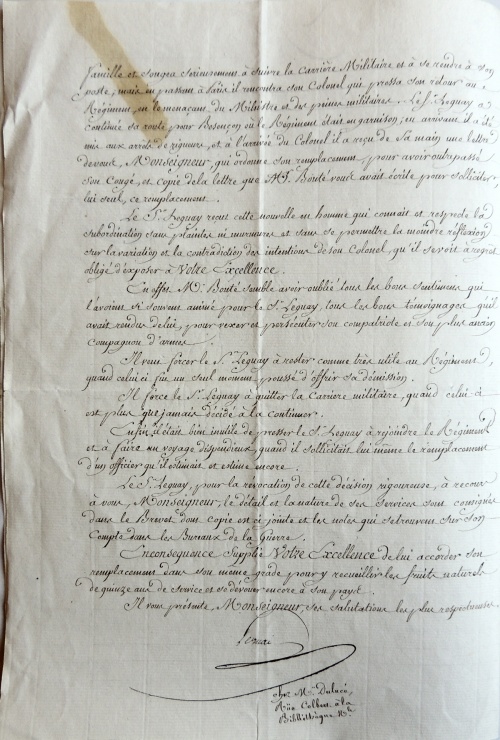 famille et songea sérieusement à suivre la Carrière Militaire et à se rendre à son
poste; mais en passant à Paris il rencontra son Colonel qui pressa son retour au
Régiment, en le menaçant du Ministre et des peines militaires. Le Sr. Leguay a
continué sa route pour Besançon où le Régiment était en garnison; en arrivant il a été
mis aux arrêts de rigueur, et à l'arrivée du Colonel il a reçu de sa main une lettre
de vous, Monseigneur, qui ordonne son remplacement, pour avoir outrepassé
son Congé, et copie de la lettre que Mr. Bonté vous avait écrite pour solliciter
lui seul, ce remplacement.
Le Sr. Leguay reçut cette nouvelle en homme qui connait et respecte la
subordination sans plaintes ni murmures et sans se permettre la moindre réflexion
sur la variation et la contradiction des intentions de son Colonel, qu'il se voit à regret
obligé d'exposer à Votre Excellence.
En effet Mr. Bonté semble avoir oublié tous les bons sentimens qui
l'avoient si souvent animé pour le Sr. Léguay, tous les bons témoignages qu'il
avait rendus de lui, pour vexer et persécuter son compatriote et son plus ancien
compagnon d'armes.
Il veut forcer le Sr. Leguay à rester comme très utile au Régiment,
quand celui ci fut un seul moment poussé d'offrir sa démission.
Il force le Sr. Léguay à quitter la Carrière militaire, quand celui ci
est plus que jamais décidé à la continuer.
Enfin il était bien inutile de presser le Sr. Leguay à rejoindre le Régiment
et à faire un voyage dispendieux, quand il sollicitait lui même le remplacement
d'un officier qu'il estimait et estime encore.
Le Sr. Leguay, pour la révocation de cette décision rigoureuse, à recours
à vous, Monseigneur, le détail et la nature de ses Services sont consignés
dans le Brevet dont copie est ci jointe et les notes qui se trouvent sur son
Compte dans les Bureaux de la Guerre.
En conséquence supplie Votre Excellence de lui accorder son
remplacement dans son même grade pour y recueillir les fruits naturels
de quinze ans de service et se dévouer encore à son pays.
Il vous présente, Monseigneur, ses salutations les plus respectueuses
chez Mr.
Rüe Colbert à la
Bibliothèque